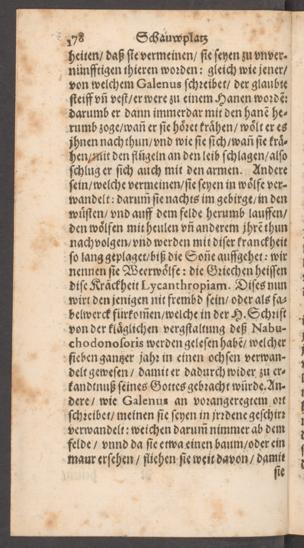 178 Schauwplatz
heiten/ daß sie vermeinen/ sie seyen zu vnver-
nünfftigen thieren worden: gleich wie jener/
von welchem Galenus schreibet/ der glaubte
steiff vñ vest/ er were zu einem Hanen wordẽ:
darumb er dann immerdar mit den hanẽ he-
rumb zoge/ wañ er sie höret krähen/ wölt er es
jhnen nach thun/ vnd wie sie sich/ wañ sie krä-
hen/ mit den flügeln an den leib schlagen/ also
schlug er sich auch mit den armen. Andere
sein/ welche vermeinen/ sie seyen in wölfe ver-
wandelt: darum̃ sie nachts im gebirge/ in den
wüsten/ vnd auff dem felde herumb lauffen/
den wölfen mit heulen vñ anderem jhrẽ thun
nachvolgen/ vnd werden mit diser kranckheit
so lang geplaget/ biß die Soñe auffgehet: wir
nennen sie Weerwölfe: die Griechen heissen
dise Krãckheit Lycanthropiam. Dises nun
wirt den jenigen nit frembd sein/ oder als fa-
belwerck fürkom̃en/ welche in der H. Schrift
von der kläglichen vergstaltung deß Nabu-
chodonosoris werden gelesen habẽ/ welcher
sieben gantzer jahr in einen ochsen verwan-
delt gewesen/ damit er dadurch wider zu er-
kandtnuß seines Gottes gebracht würde. An-
dere/ wie Galenus an vorangeregtem ort
schreibet/ meinen sie seyen in jrrdene geschirr
verwandelt: weichen darum̃ nimmer ab dem
felde/ vnnd da sie etwa einen baum/ oder ein
maur ersehen/ fliehen sie weit davon/ damit
sie